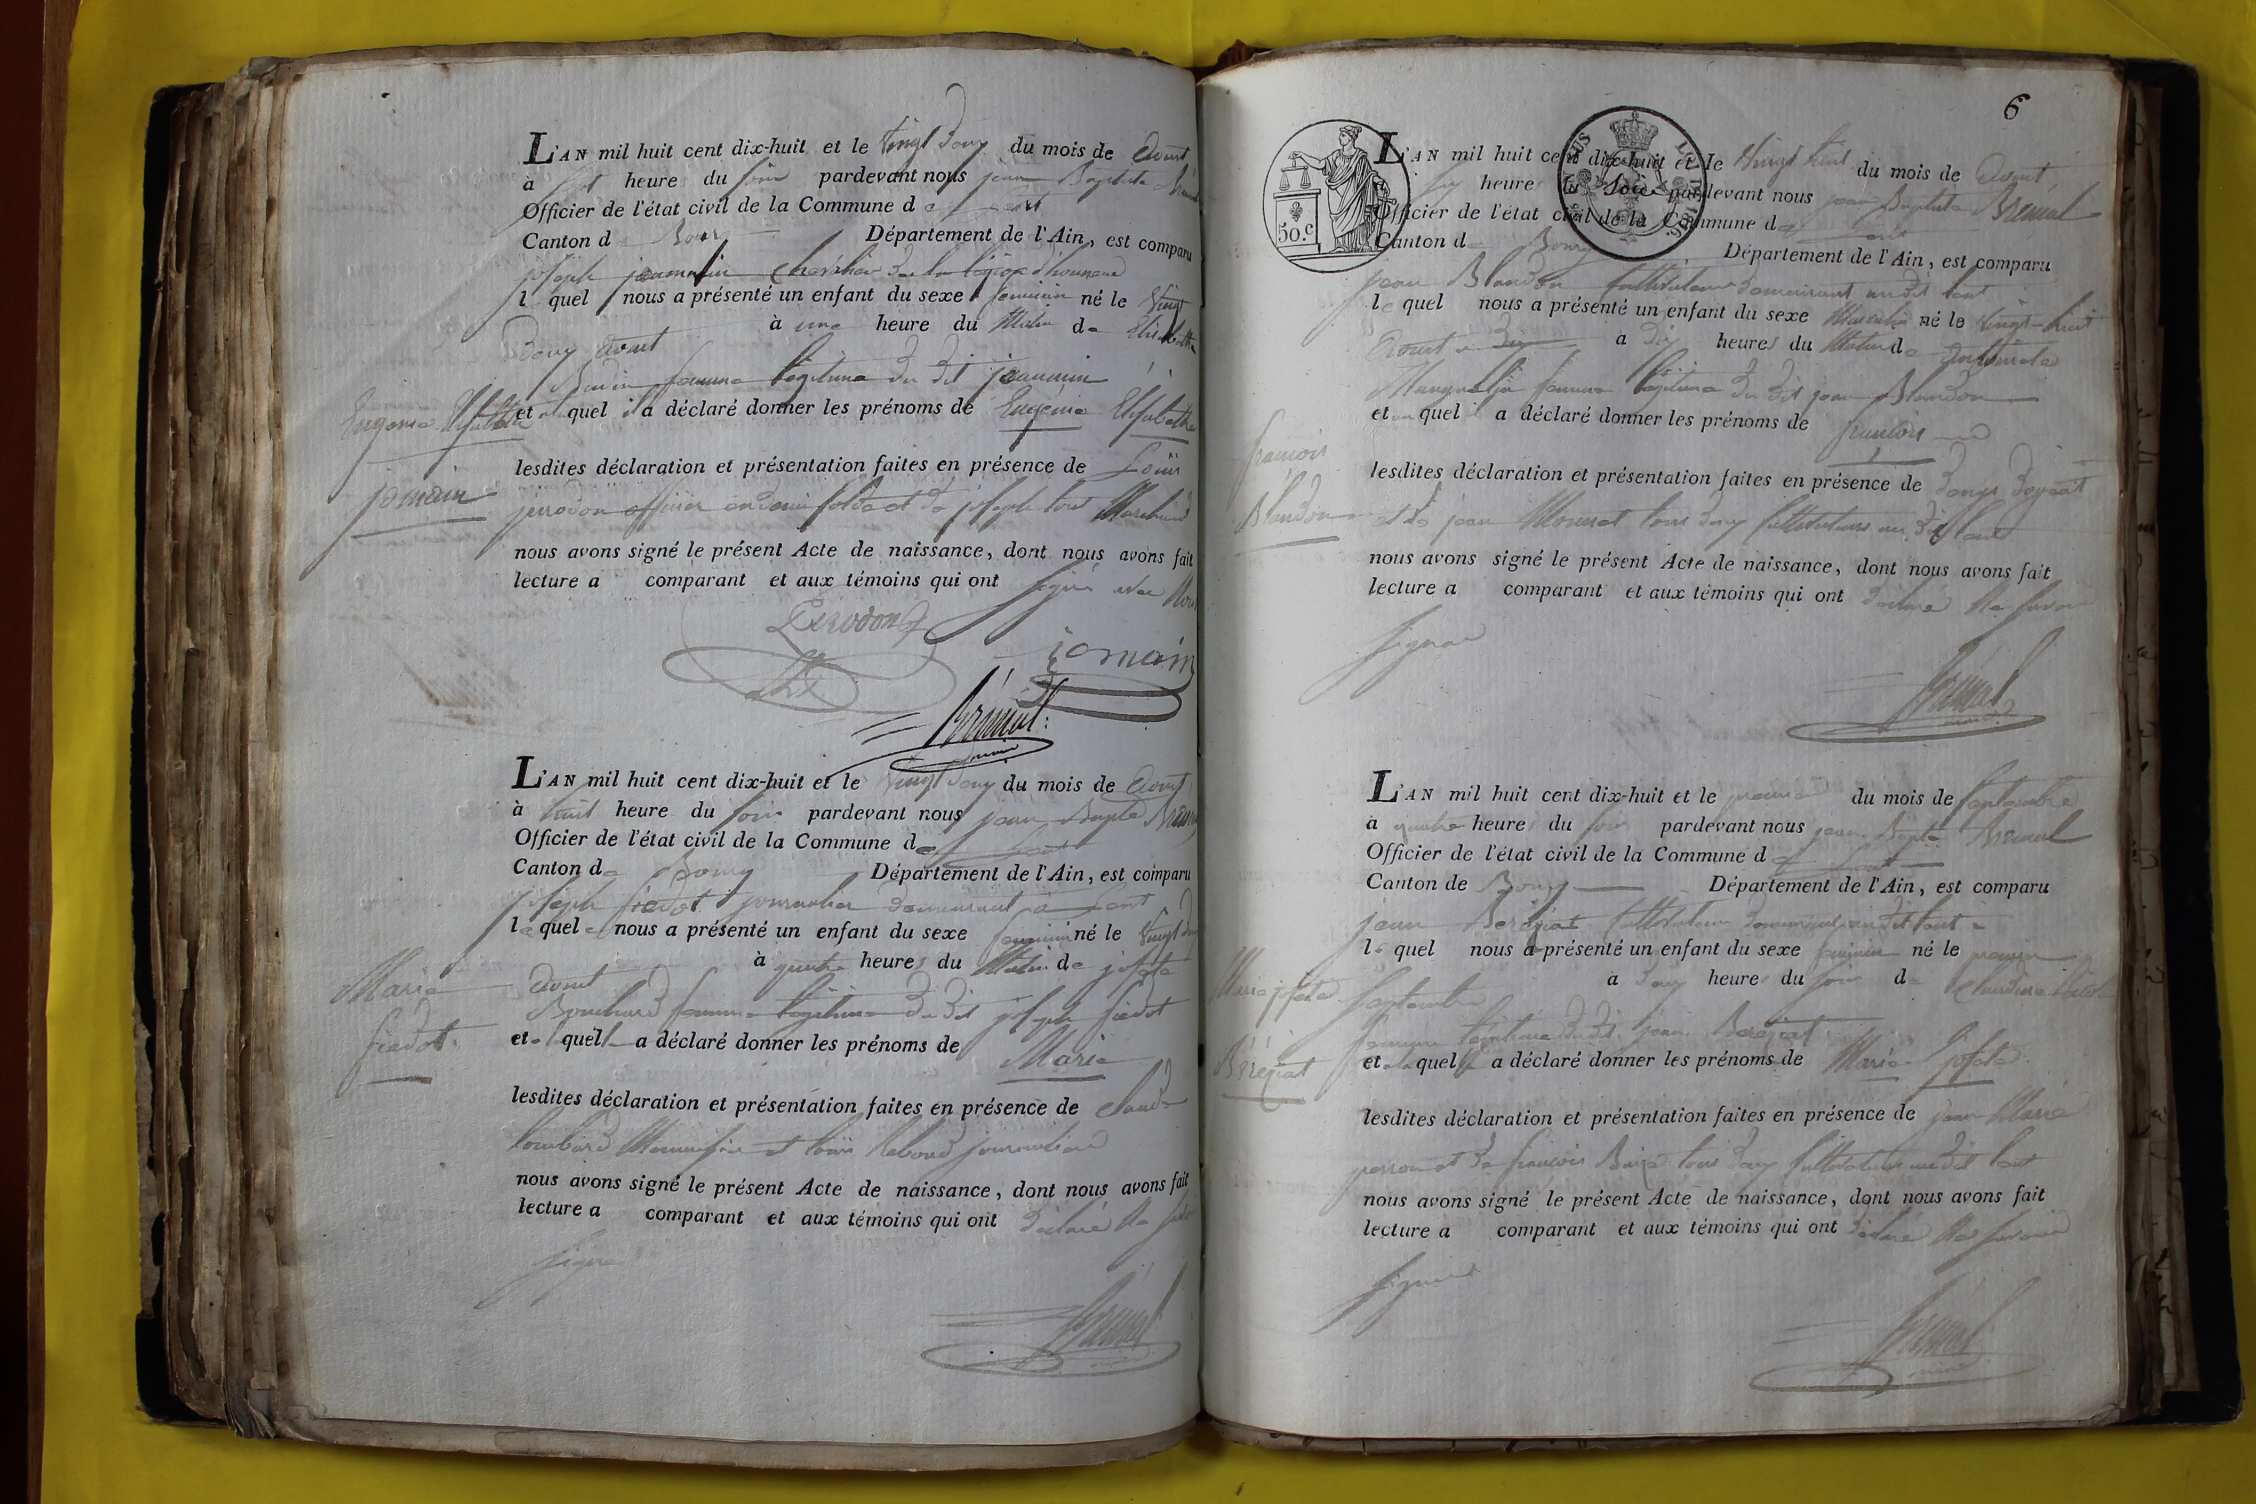 L'AN mil huit cent dix-huit et le vingt deux du mois de Aout
à sept heures du soir pardevant nous jean Baptiste
Officier de l'état civil de la Commune de
Canton de Bourg Département de l'Ain, est comparu
joseph jeaumain de la légion d'honneur
lequel nous a présenté un enfant du sexe feminin né le vingt
deux Aout à une heure du Matin de Elisabeth
femme légitime du dit jeaumain
Eugenie Elisabeth
et quel il a déclaré donner les prénoms de Eugénie Elisabeth
lesdites déclaration et présentation faites en présence de Louis
jomain
perrodon officier en demi solde et de joseph Marchand
nous avons signé le présent Acte de naissance, dont nous avons fait
lecture a comparant et aux témoins qui ont signé avec Nous
Perrodon
jomain
Brénial
maire
L'AN mil huit cent dix-huit et le vingt deux du mois de Aout
à huit heure du soir pardevant nous jean Bapte
Officier de l'état civil de la Commune de
Canton de Bourg Département de l'Ain, est comparu
joseph fiedot journalier demeurant à
lequel nous a présenté un enfant du sexe feminin né le vingt
Aout à quatre heures du Matin de josete
Marie
Bouchard femme légitime du dit joseph fiedot
fiedot
et quel a déclaré donner les prénoms de Marie
lesdites déclaration et présentation faites en présence de claude
lombard et Louis Reboud journalier
nous avons signé le présent Acte de naissance, dont nous avons fait
lecture a comparant et aux témoins qui ont déclaré Ne
signer
Brénial
6
L'AN mil huit cent dix-huit et le vingt huit du mois de Aout
heures du Soir pardevant nous jean Baptiste Brenial
Officier de l'état civil de la Commune de
Canton de Bourg Département de l'Ain, est comparu
50.c
jean Blandon cultivateur demeurant audit
lequel nous a présenté un enfant du sexe Masculin né le vingt-huit
Aout a dix heures du Matin de
femme légitime du dit jean Blandon
et quel il a déclaré donner les prénoms de francois
francois
Blandon
lesdites déclaration et présentation faites en présence de
et de jean tous deux cultivateurs au dit
nous avons signé le présent Acte de naissance, dont nous avons fait
lecture a comparant et aux témoins qui ont déclaré Ne savoir
signer
Brénial
L'AN mil huit cent dix-huit et le premier du mois de Septembre
à quatre heures du soir pardevant nous jean Bapte Brenial
Officier de l'état civil de la Commune de
Canton de Bourg Département de l'Ain, est comparu
jean Beréziat cultivateur demeurant audit
le quel nous a présenté un enfant du sexe feminin né le premier
Septembre à deux heures du soir de Claudine
Marie josete
femme légitime du dit jean Beréziat
Béréziat
et quel a déclaré donner les prénoms de Marie josete
lesdites déclaration et présentation faites en présence de jean Marie
et de francois tous deux cultivateurs audit
nous avons signé le présent Acte de naissance, dont nous avons fait
lecture a comparant et aux témoins qui ont déclaré Ne savoir
signer
Brénial